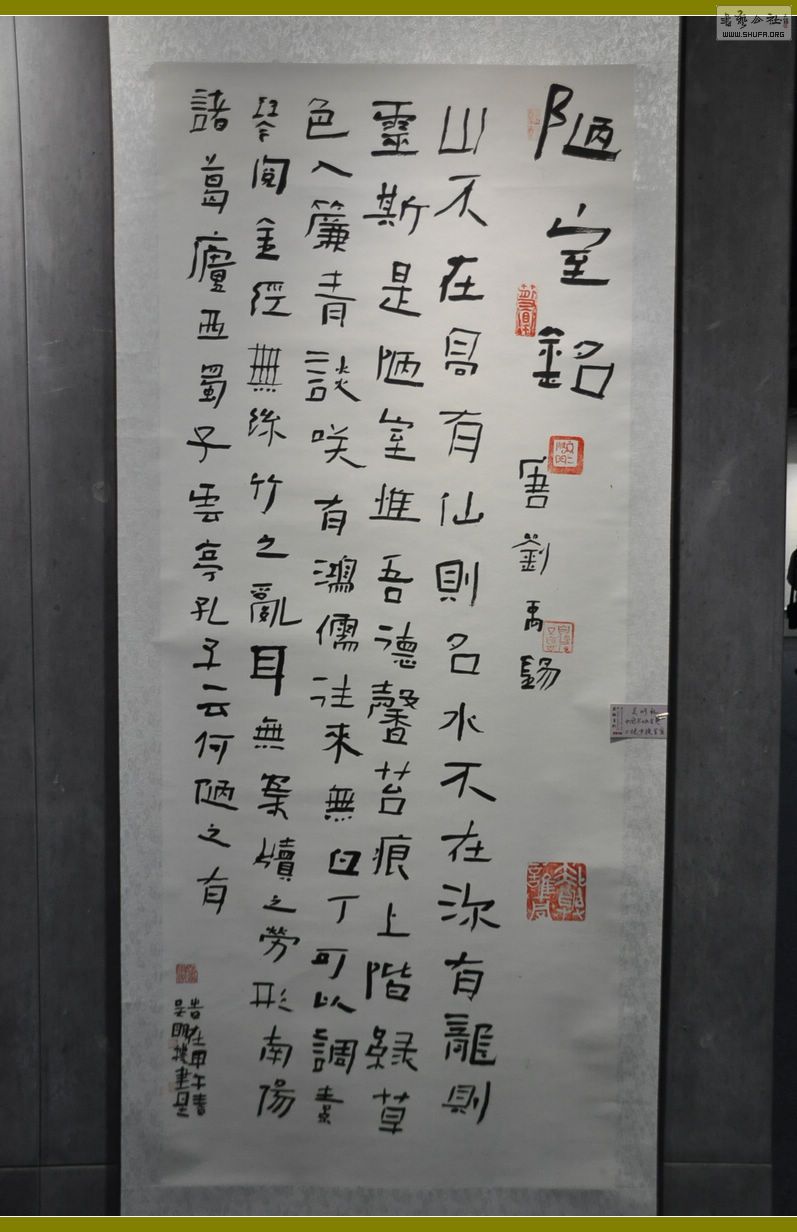 陋室銘
唐劉禹錫
山不在高有仙則名水不在深有龍則
靈斯是陋室惟吾德馨苔痕上階綠草
色入簾青談咲有鴻儒往來無白丁可以調素
琴閱金經無絲竹之亂耳無案牘之勞形南陽
諸葛廬西蜀子雲亭孔子云何陋之有
WWW.SHUFA.ORG